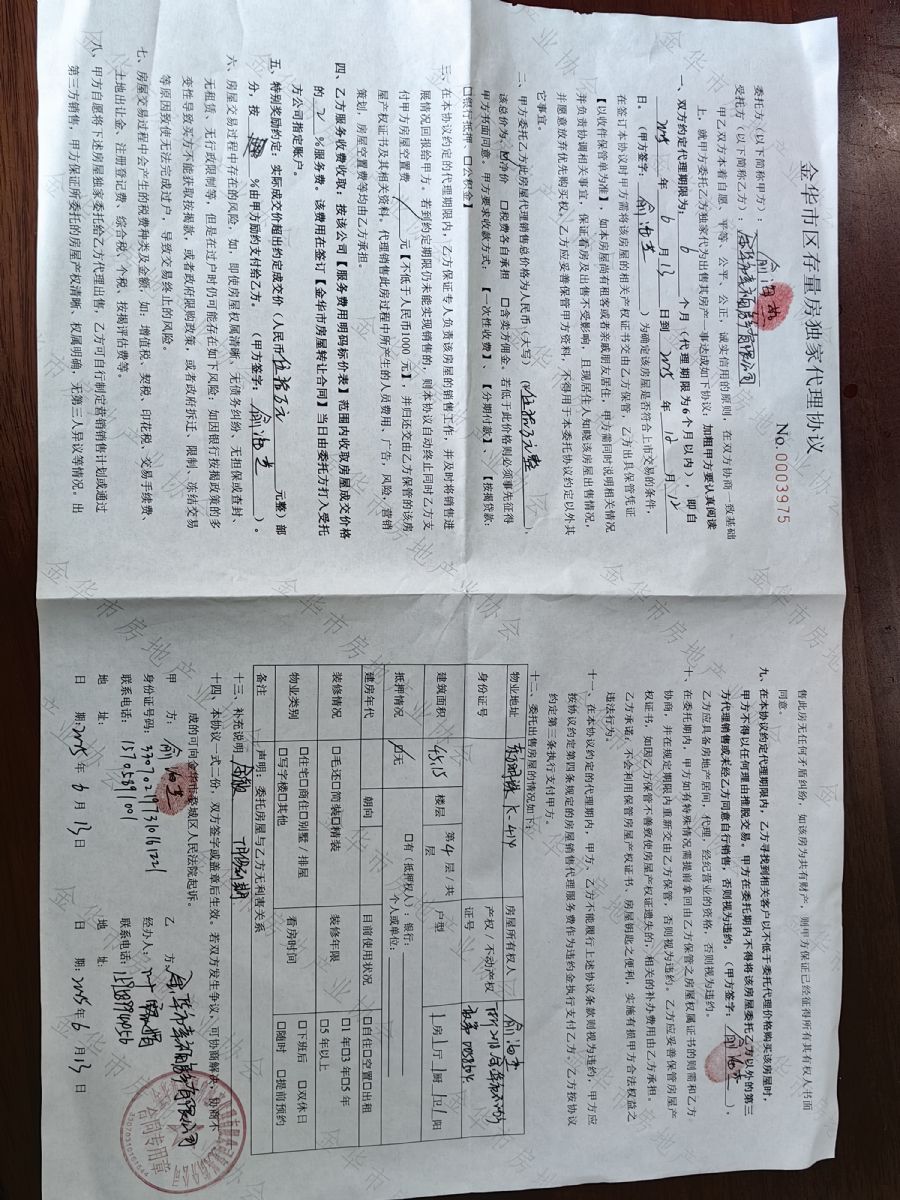 金华市区存量房独家代理协议
No.0003975
委托方（以下简称甲方）：
受托方（以下简称乙方）：
甲乙双方本着自愿、平等、公平、公正，诚实信用的原则，在双方协商一致基础
上，就甲方委托乙方独家代为出售其房产一事达成如下协议，加粗甲方要认真阅读
一、双方约定代理期限为： 6 个月（代理期限为6个月以内），即自
2025 年 6 月 13 日到 2025 年 12 月 12
日。（甲方签字： ）为确定该房屋是否符合上市交易的条件，
在签订本协议时甲方需将该房屋的相关产权证书交由乙方保管，乙方出具保管凭证
【以收件保管单为准】，如本房屋尚有租客或者亲戚朋友居住，甲方需同时说明相关情况
并负责协调相关事宜，保证看房及出售不受影响，且现居住人知晓该房屋出售情况，
并愿意放弃优先购买权。乙方应妥善保管甲方资料，不得用于本委托协议约定以外其
它事宜。
二、甲方委托乙方此房屋代理销售总价格为人民币（大写）（ 伍拾万元整 ），
该总价为、☑净价 □税费各自承担 □含卖方佣金。若低于此价格则必须事先征得
甲方书面同意，甲方要求收款方式：【一次性收费】、【分期付款】、【按揭贷款，
□银行抵押、□公积金】
三、在本协议约定的代理期限内，乙方保证专人负责该房屋的销售工作，并及时将销售进
展情况回报给甲方。若到约定期限仍未能实现销售的，则本协议自动终止同时乙方支
付甲方房屋空置费 / 元【不低于人民币1000元】，并归还交由乙方保管的该房
屋产权证书及其相关资料，代理销售此房过程中所产生的人员费用、广告，风险，营销
策划，房屋空置费等均由乙方承担。
四、乙方服务收费收取：按该公司【服务费用明码标价表】范围内收取房屋成交价格
的 2 %服务费。该费用在签订【金华市房屋转让合同】当日由委托方打入受托
方公司指定账户。
五、特别奖励约定：实际成交价超出约定成交价（人民币 伍拾万元 元整）部
分，按 %由甲方励约支付给乙方。（甲方签字： ）。
六、房屋交易过程中存在的风险，如，即使房屋权属清晰、无债务纠纷、无担保或查封、
无租赁、无行政限制等，但是在过户时仍可能存在如下风险：如因银行按揭政策的多
变性导致买方不能获取按揭款，或者政府限购政策，或者政府拆迁、限制、冻结交易
等原因致使无法完成过户，导致交易终止的风险。
七、房屋交易过程中会产生的税费种类及金额，如：增值税、契税、印花税、交易手续费、
土地出让金、注册登记费，综合税、个税，按揭评估费等。
八、甲方自愿将下述房屋独家委托给乙方代理出售，乙方可自行制定营销销售计划或通过
第三方销售，甲方保证所委托的房屋产权清晰、权属明确，无第三人异议等情况。出
售此房无任何矛盾纠纷，如该房为共有财产，则甲方保证已经征得所有其有权人书面
同意。
九、在本协议约定代理期限内，乙方寻找到相关客户以不低于委托代理价格购买该房屋时，
甲方不得以任何理由推脱交易。甲方在委托期内不得将该房屋委托乙方以外的第三
方代理销售或未经乙方同意自行销售，否则视为违约。（甲方签字： ）。
乙方应具备房地产居间，代理，经纪营业的资格，否则视为违约。
十、在委托期内，甲方如有特殊情况需提前拿回由乙方保管之房屋权属证书的则需和乙方
协商，并在规定期限内重新交由乙方保管，否则视为违约。乙方应妥善保管房屋产
权证书，如因乙方保管不善致使房屋产权证遗失的，相关的补办费用由乙方承担。
乙方承诺：不会利用保管房屋产权证书，房屋钥匙之便利，实施有损甲方合法权益之
违法行为。
十一、在本协议约定的代理期内，甲方、乙方不能履行上述协议条款则视为违约，甲方应
按协议约定第四条规定的房屋销售代理服务费作为违约金执行支付乙方，乙方按协议
约定第三条执行支付甲方。
十二、委托出售房屋的情况如下：
物业地址 K-414 房屋所有权人
身份证号 产权/不动产权证号
建筑面积 45.15 楼层 第4层/共 层 户型 1房1厅 厨 卫1阳
抵押情况 ☑无 □有（抵押权人）：银行： 个人或单位：
建房年代 朝向 目前使用状况 □自住□空置□出租
装修情况 □毛还□简装□精装 装修年限 □1年□3年□5年 □5年以上
物业类别 □住宅□商住□别墅/排屋 □写字楼□其他 看房时间 □下班后 □双休日 □随时 □提前预约
备注 声明：委托房屋与乙方无利害关系
十三、补充说明
十四、本协议一式二份，双方签字或盖章后生效。若双方发生争议，可协商解决，协商不
成的可向金华市婺城区人民法院起诉。
甲 方： 乙 方：
身份证号码：330702197316161221 经办人：
联系电话：15705891001 联系电话：
地 址： 地 址：
日 期：2025年6月13日 日 期：2025年6月13日
合同专用章